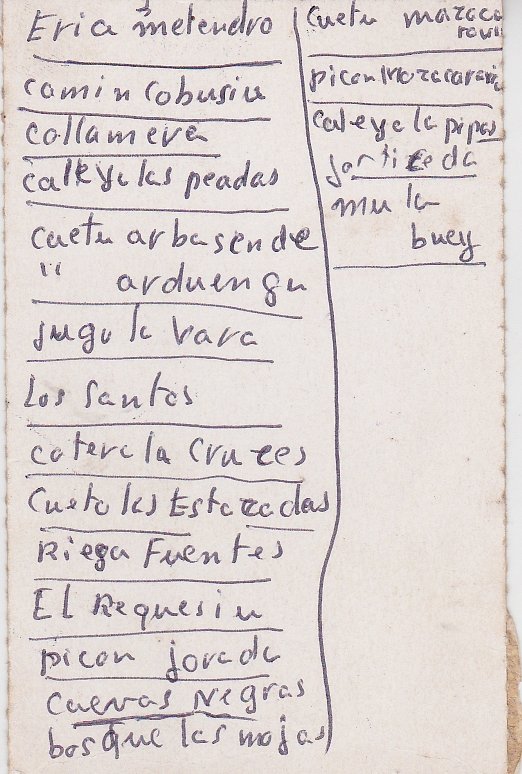 Eria metendro
camin cobusiu
collamera
calleya las peadas
cuetu arbasende
" arduengu
jugu la vara
Los Santos
cotera la Cruces
Cueto las Estazadas
Riega Fuentes
El Requesiu
picon jorada
Cuevas Negras
bosque las mojas
Cuetu
picon
caleya la pipas
mu la
buey